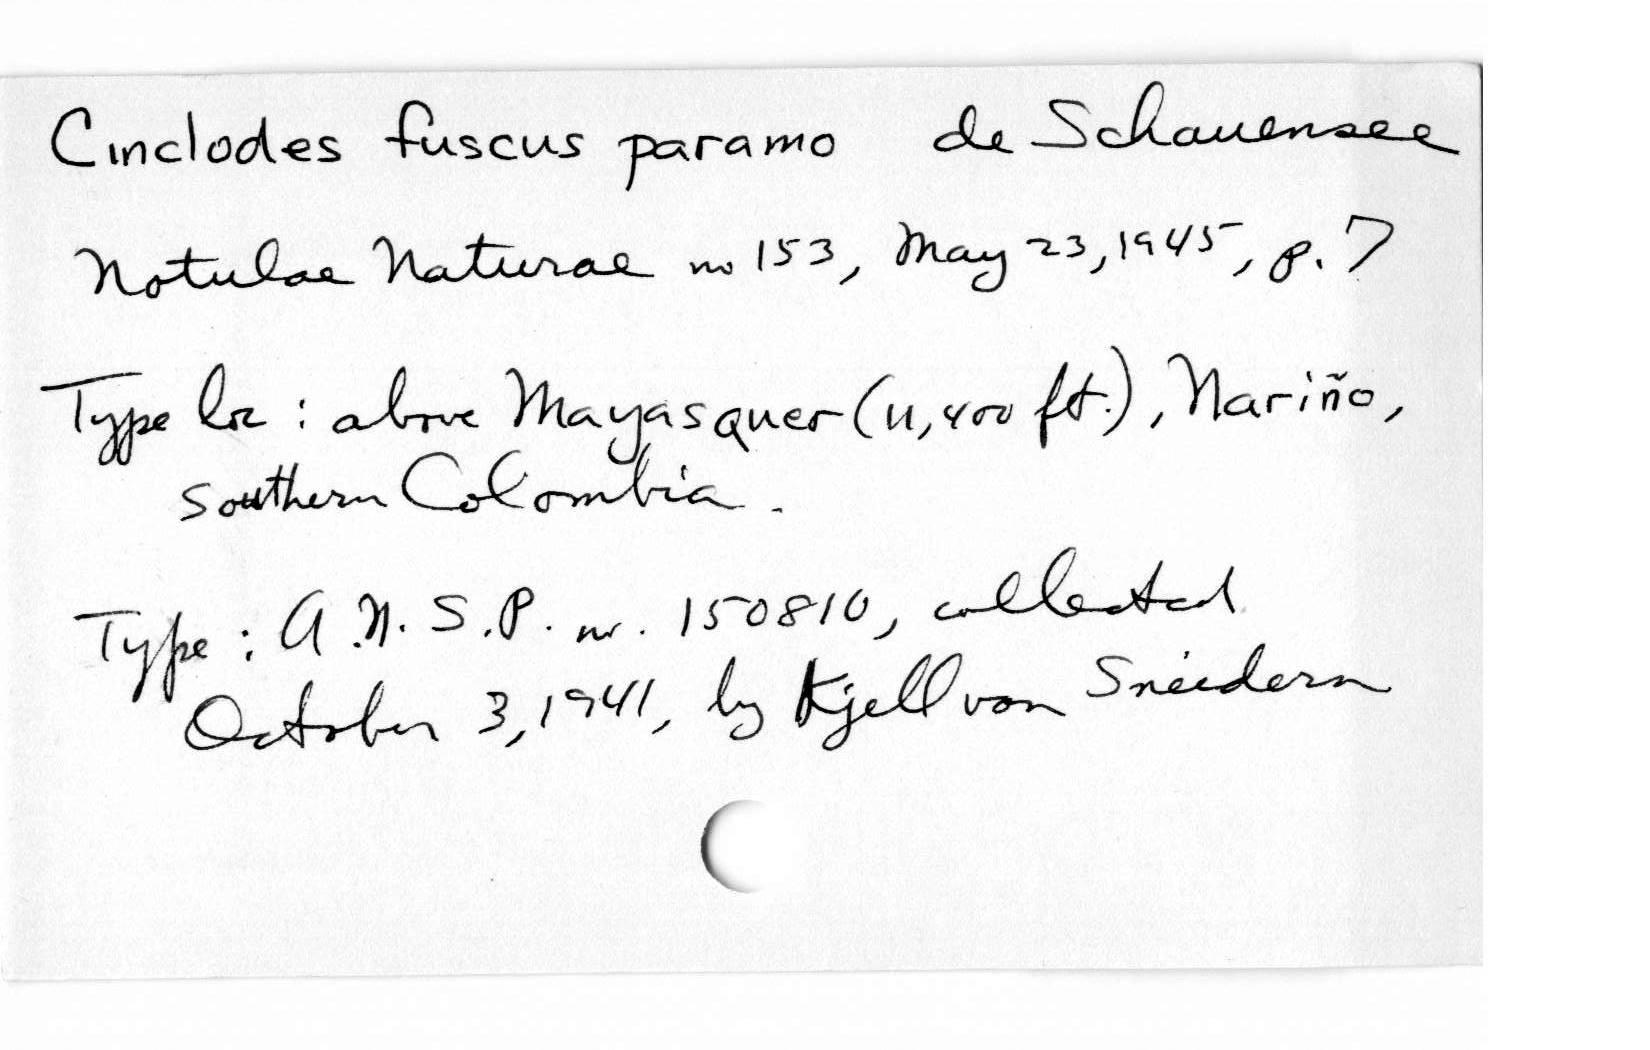 Cinclodes fuscus paramo de Schauensee
Notulae Naturae no 153, May 23, 1945, p. 7
Type loc : above Mayasquer (11,400 ft.), Nariño,
southern Colombia.
Type : A.N.S.P. no. 150810, collected
October 3, 1941, by Kjell von Sneidern